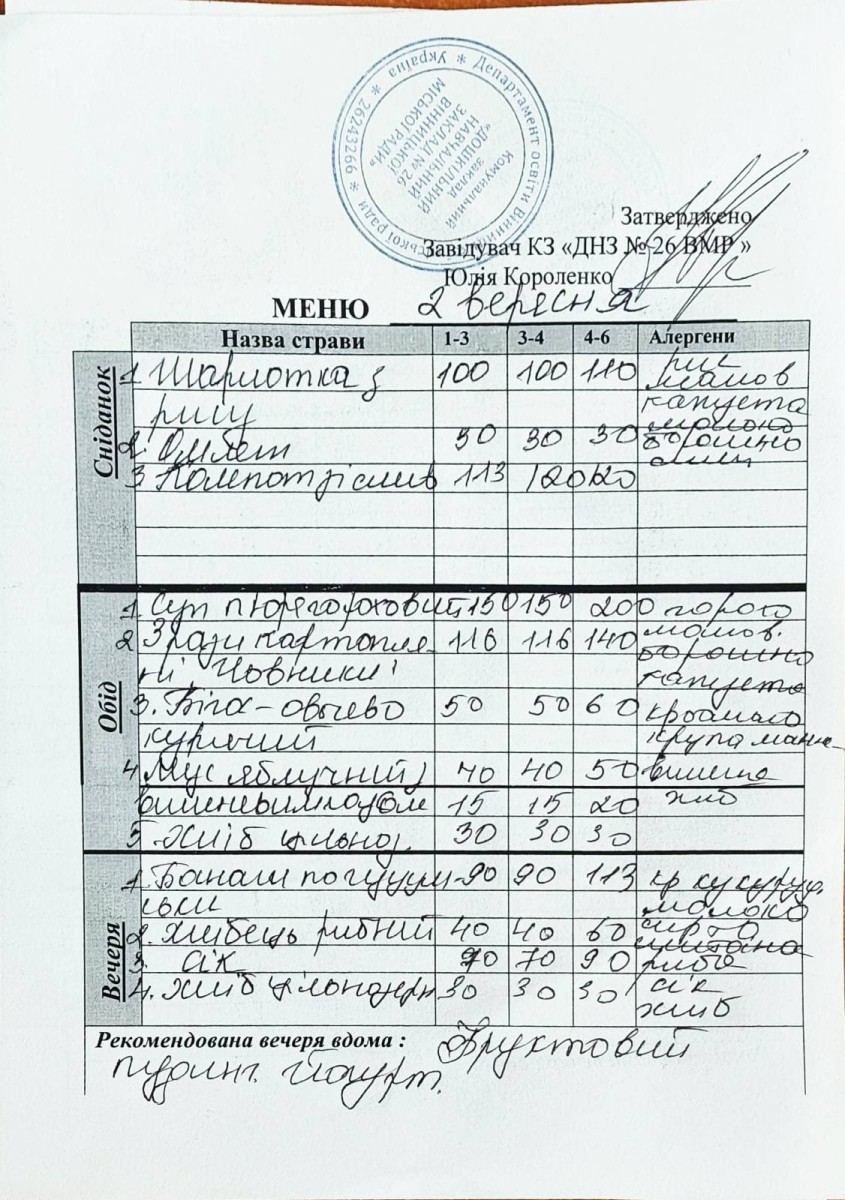 * Україна * Департамент освіти Вінницької міської ради * 26243266
Комунальний
заклад
«ДОШКІЛЬНИЙ
НАВЧАЛЬНИЙ
ЗАКЛАД № 26
ВІННИЦЬКОЇ
МІСЬКОЇ РАДИ»
Затверджено
Завідувач КЗ «ДНЗ № 26 ВМР »
Юлія Короленко
МЕНЮ 2 вересня
Назва страви 1-3 3-4 4-6 Алергени
Сніданок
1. Шарлотка з 100 100 110 рис
рису капуста
молоко
2. Омлет 30 30 30 борошно
3. Компот зі слив 113 120 120
Обід
1. Суп пюре гороховий 150 150 200 горох
2 Зрази картопля- 116 116 140
ні "Човники" борошно
капуста
3. Біга-овочево 50 50 60 крохмаль
курячий крупа манн
4. Мус яблучний з 40 40 50 вишня
вишневим 15 15 20 хліб
5. Хліб цільноз. 30 30 30
Вечеря
1. Банаш по гуцуль- 90 90 113 кр кукуруд.
ськи молоко
2. Хлібець рибний 40 40 60 сметана
3. сік 70 70 90 риба
4. Хліб цільнозерн 30 30 30 сік
хліб
Рекомендована вечеря вдома : Фруктовий
пудинг. Йогурт.